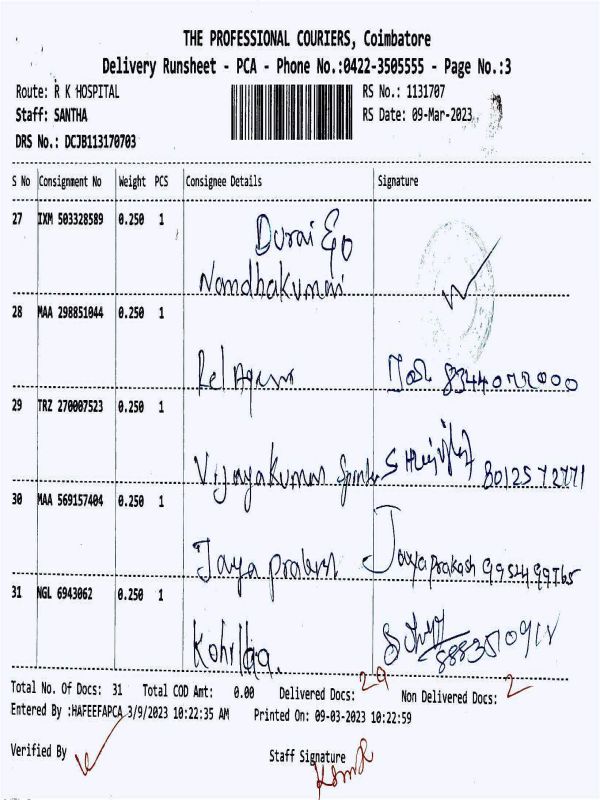 THE PROFESSIONAL COURIERS, Coimbatore
Delivery Runsheet - PCA - Phone No.:0422-3505555 - Page No.:3
Route: R K HOSPITAL RS No.: 1131707
Staff: SANTHA RS Date: 09-Mar-2023
DRS No.: DCJB113170703
S No Consignment No Weight PCS Consignee Details Signature
27 IXM 503328589 0.250 1
Durai
Nandhakumar
28 MAA 298851044 0.250 1
29 TRZ 270007523 0.250 1
Vijayakumar
30 MAA 569157404 0.250 1
Jaya prakash Jayaprakash
31 NGL 6943062 0.250 1
Total No. Of Docs: 31 Total COD Amt: 0.00 Delivered Docs: 29 Non Delivered Docs: 2
Entered By :HAFEEFAPCA 3/9/2023 10:22:35 AM Printed On: 09-03-2023 10:22:59
Verified By Staff Signature